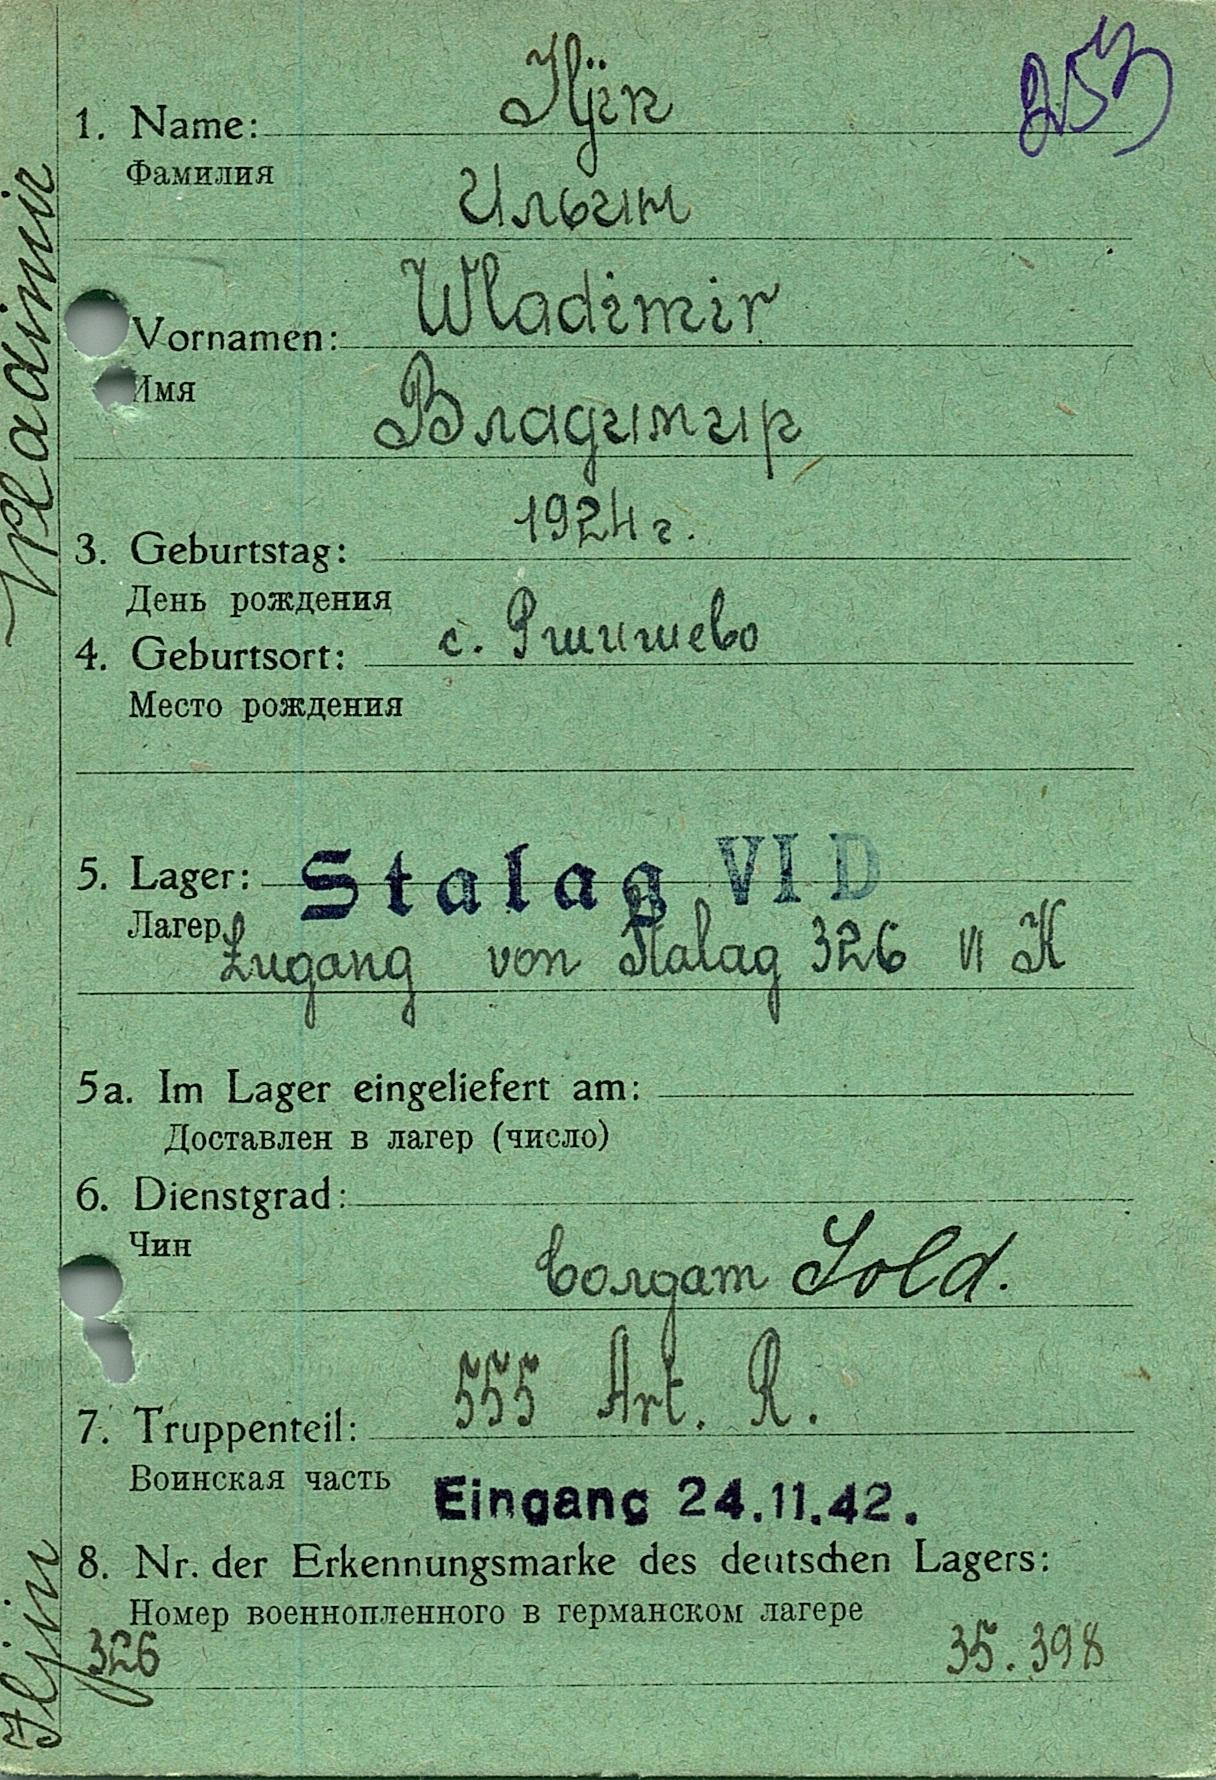 Iljin
1. Name:
Фамилия
Ильин
Wladimir
Vornamen:
Имя
Владимир
1924 г.
3. Geburtstag:
День рождения
4. Geburtsort: с. Ришишево
Место рождения
5. Lager: Stalag VI D
Лагер
Zugang von Stalag 326 VI K
5a. Im Lager eingeliefert am:
Доставлен в лагер (число)
6. Dienstgrad:
Чин
Солдат Sold.
555 Art. R.
7. Truppenteil:
Воинская часть
Eingang 24.11.42.
8. Nr. der Erkennungsmarke des deutschen Lagers:
Номер военнопленного в германском лагере
326 35.398
Iljin Wladimir